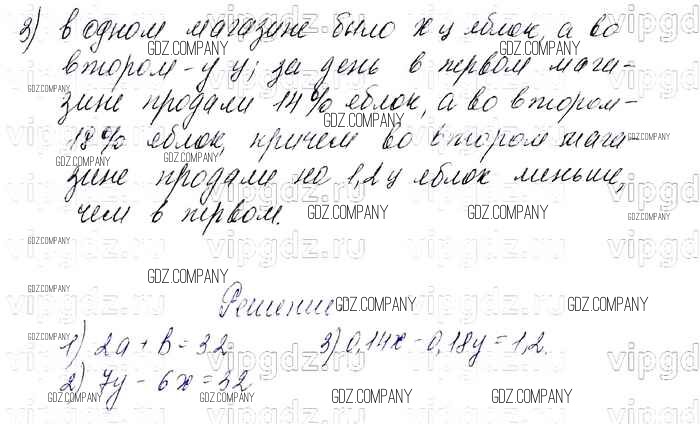 3) в одном магазине было x ц яблок, а во
втором - y ц; за день в первом мага-
зине продали 14% яблок, а во втором -
18% яблок, причем во втором мага-
зине продали на 1,2 ц яблок меньше,
чем в первом.
Решение
1) 2a + b = 32 3) 0,14x - 0,18y = 1,2.
2) 7y - 6x = 32
GDZ.COMPANY
vipgdz.ru